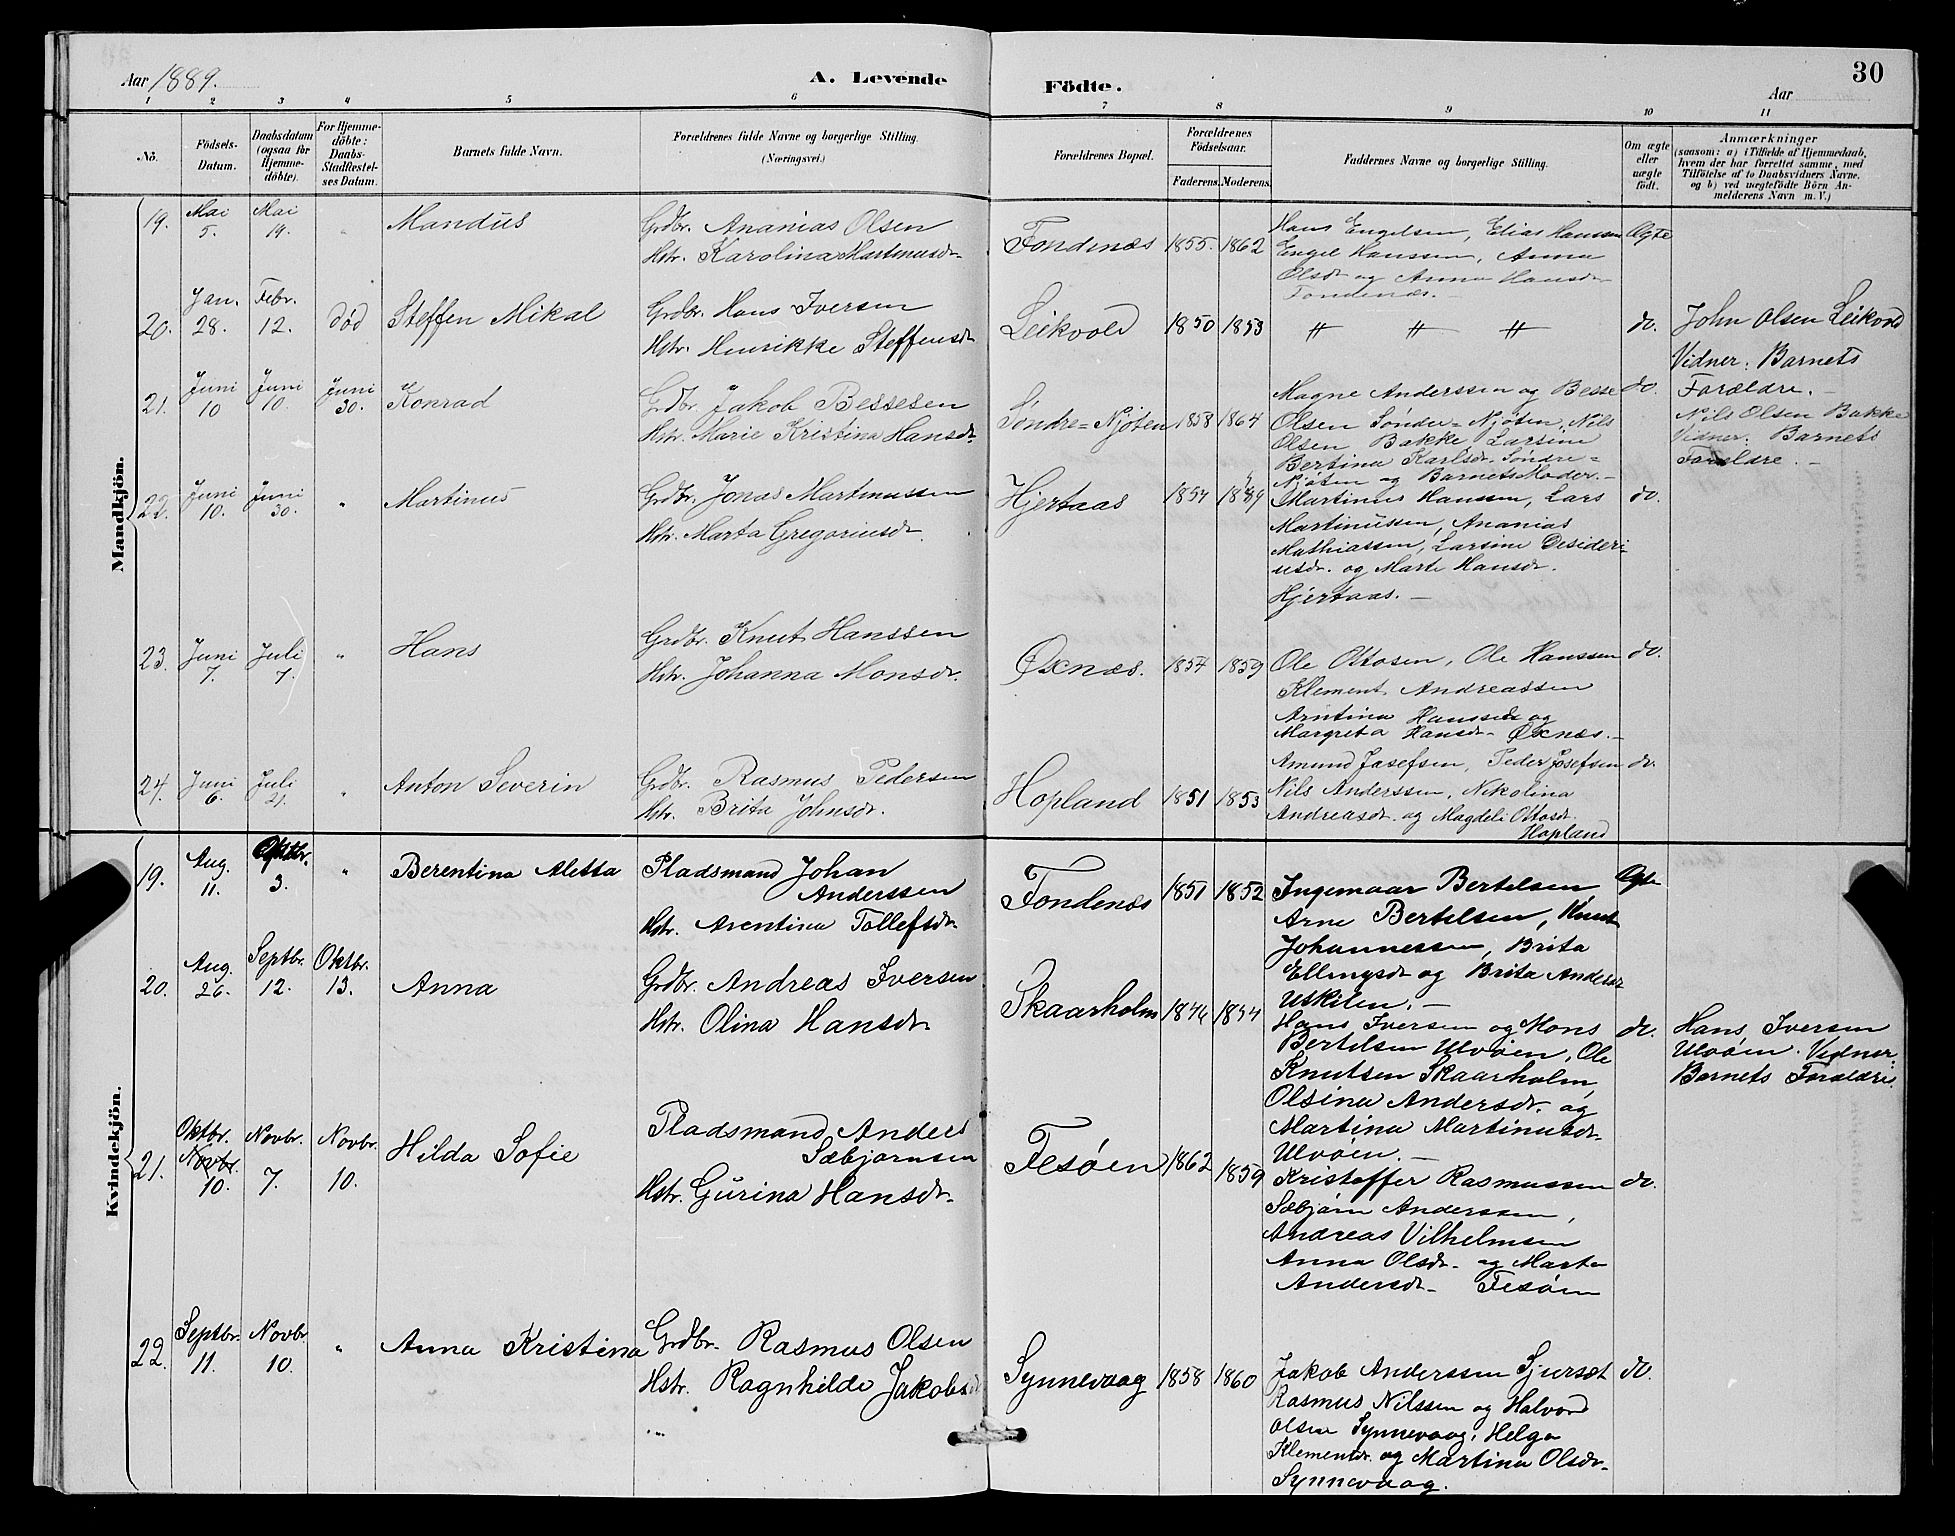 Aar 1889.
A. Levende
Födte.
30
Aar
1 2 3 4 5 6 7 8 9 10 11
No.
Födsels-Datum.
Daabsdatum (ogsaa for Hjemme-döbte).
For Hjemme-döbte: Daabs-Stadfæstel-ses Datum.
Barnets fulde Navn.
Forældrenes fulde Navne og borgerlige Stilling.
(Næringsvei.)
Forældrenes Bopæl.
Forældrenes Födselsaar.
Faderens. Moderens.
Faddernes Navne og borgerlige Stilling.
Om ægte eller uægte födt.
Anmærkninger
(saasom: a) i Tilfælde af Hjemmedaab,
hvem der har forrettet samme, med
Tilföielse af to Daabsvidners Navne,
og b) ved uægtefödte Börn An-
melderens Navn m. V.)
Mandkjön.
19. Mai 5. Mai 19. " Mandus
Grdbr. Ananias Olsen
Hstr. Karolina Martinusdr
Fondenæs 1855. 1862
Hans Engelsen, Elias Hanssen
Engel Hanssen, Anna
Olsdr og Anna Hansdr
Fondenæs. -
Ægte
20. Jan. 28. Febr. 12. død Steffen Mikal
Grdbr. Hans Iversen
Hstr. Henrikke Steffensdr
Leikvold 1850 1853
" " "
do.
John Olsen Leikvold
Vidner: Barnets
Forældre. -
21. Juni 10 Juni 10. Juni 30. Konrad
Grdbr. Jakob Bessesen
Hstr. Marie Kristina Hansdr
Søndre=Njøten 1858 1864
Magne Anderssen og Besse
Olsen Sønder=Njøten, Nils
Olsen Bakke Larsine
Bertina Karlsdr. Søndre=
Njøten og Barnets Moder. -
do.
Nils Olsen Bakke
Vidner: Barnets
Forældre. -
22. Juni 10. Juni 30. " Martinus
Grdbr. Jonas Martinussen
Hstr. Marta Gregoriusdr
Hjertaas
Martinus Hanssen, Lars
Martinussen, Ananias
Mathiassen, Larsine Desideri-
usdr. og Marte Hansdr.
Hjertaas. -
do.
23. Juni 7. Juli 7. " Hans
Grdbr. Knut Hanssen
Hstr. Johanna Monsdr.
Øxnæs. 1857 1859
Ole Ottosen, Ole Hanssen
Klement Andreassen
Arntina
og
Margreta Hansdr Øxnæs. -
do.
24. Juni 6. Juli 21. " Anton Severin
Grdbr. Rasmus Pedersen
Hstr. Brita Johnsdr.
Hopland 1851 1853
Amund Josefsen, Peder Josefsen
Nils Anderssen, Nikolina
Andreasdr. og Magdeli Ottosdr
Hopland
do.
Kvindekjön.
19. Aug. 11. Oktbr. 3. " Berentina Aletta
Pladsmand Johan
Anderssen
Hstr. Arentina Tollefsdr.
Fondenæs 1851 1852
Ingemaar Bertelsen
Arne Bertelsen, Knut
Johannessen, Brita
Ellingsdr og Brita Andersdr
Utkilen. -
Ægte
20. Aug. 26. Septbr. 12. Oktbr. 13. Anna
Grdbr. Andreas Iversen
Hstr. Olina Hansdr
Skaarholm 1846 1854
Hans Iversen og Mons
Bertelsen Ulvøen, Ole
Knutsen Skaarholm,
Olsina Andersdr. og
Martina Martinusdr
Ulvøen. -
do.
Hans Iversen
Ulvøen. Vidner:
Barnets Forældre.
21. Oktbr. Novbr. 10. Novbr. 7. Novbr. 10. Hilda Sofie
Pladsmand Anders
Sæbjørnsen
Hstr. Gurina Hansdr
Fesøen 1862 1859
Kristoffer Rasmussen
Sæbjørn Anderssen,
Andreas Vilhelmsen
Anna Olsdr og Marta
Andersdr Fesøen
do.
22. Septbr. 11. Novbr. 10. " Anna Kristina
Grdbr. Rasmus Olsen
Hstr. Ragnhilde Jakobsdr
Synnevaag 1858 1860
Jakob Anderssen Sjursæt
Rasmus Nilssen og Halvord
Olsen Synnevaag, Helga
Klementdr. og Martina Olsdr
Synnevaag.
do.